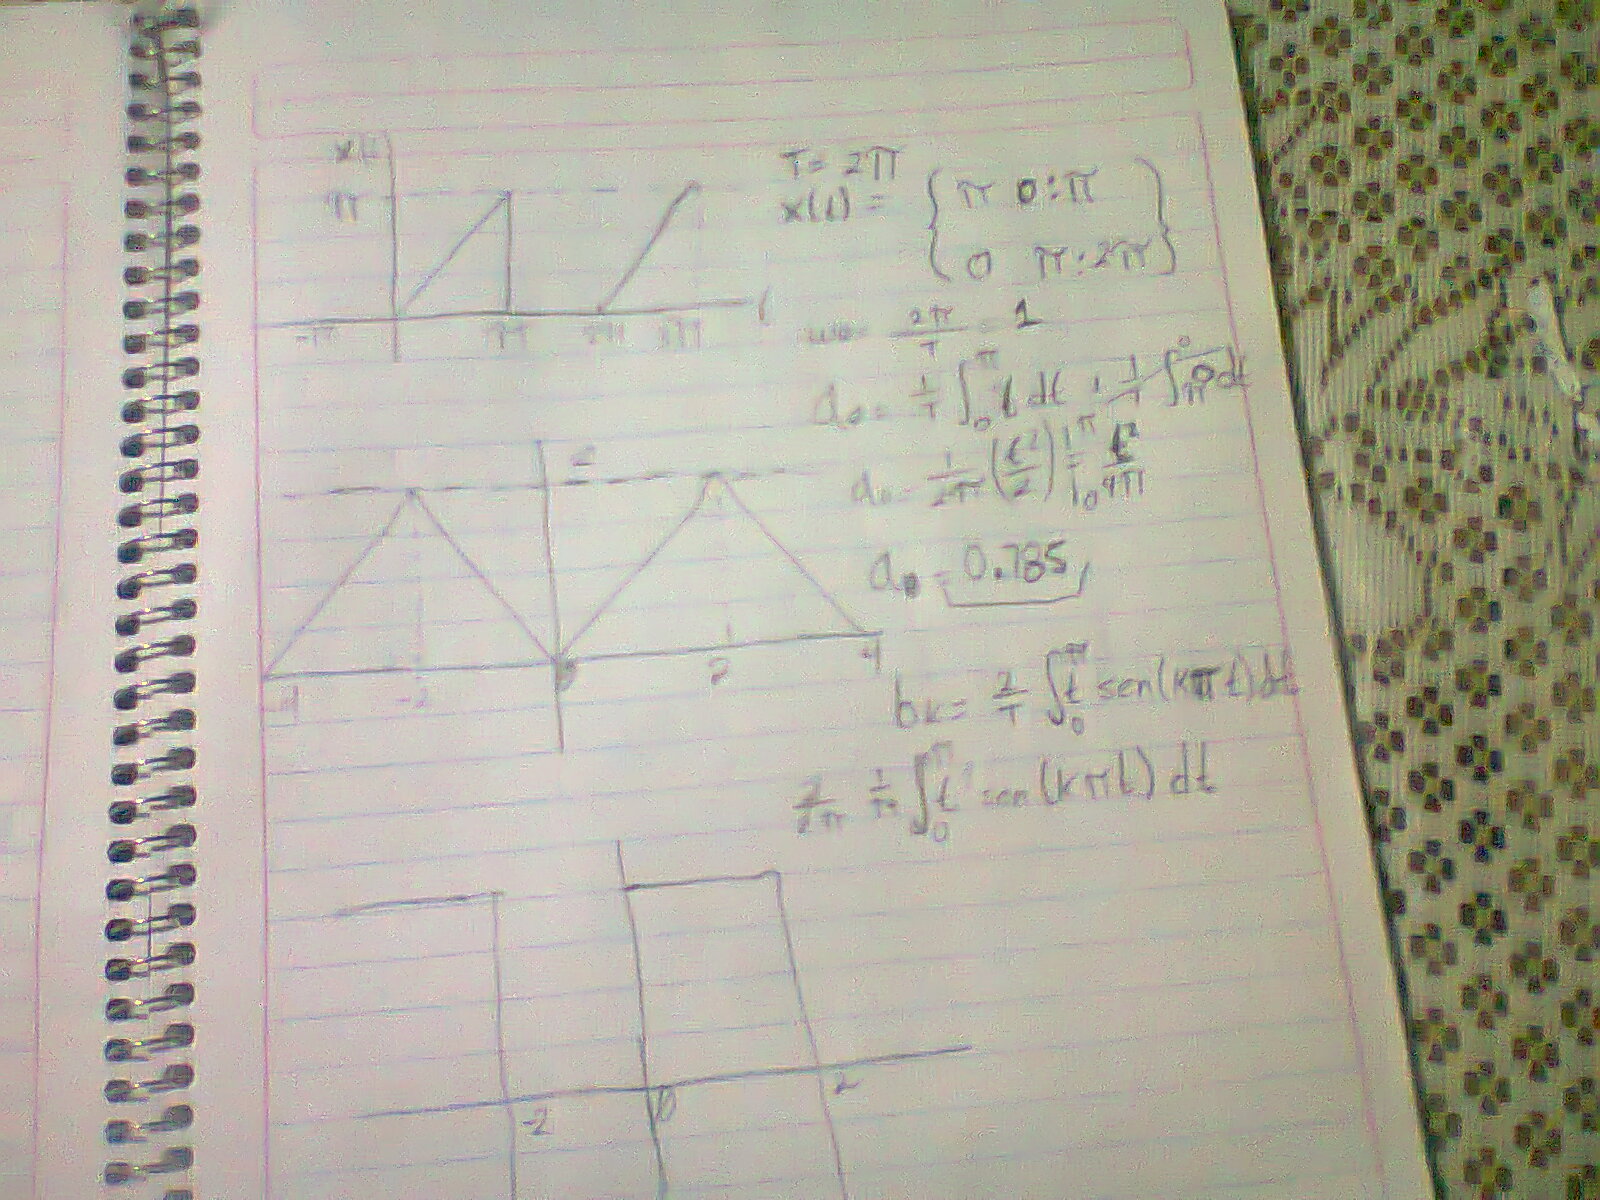 x(t)
π
-π π 2π 3π t
T = 2π
x(t) = { π 0:π
0 π:2π }
w₀ = 2π/T = 1
a₀ = 1/T ∫₀^π t dt + 1/T ∫ 0 dt
a₀ = 1/2π (t²/2) |₀^π = t²/4π
a₀ = 0.785
2
-4 -2 0 2 4
bk = 2/T ∫₀^π t sen(kπt) dt
2/2π 1/π ∫₀^π t sen(kπt) dt
-2 0 2